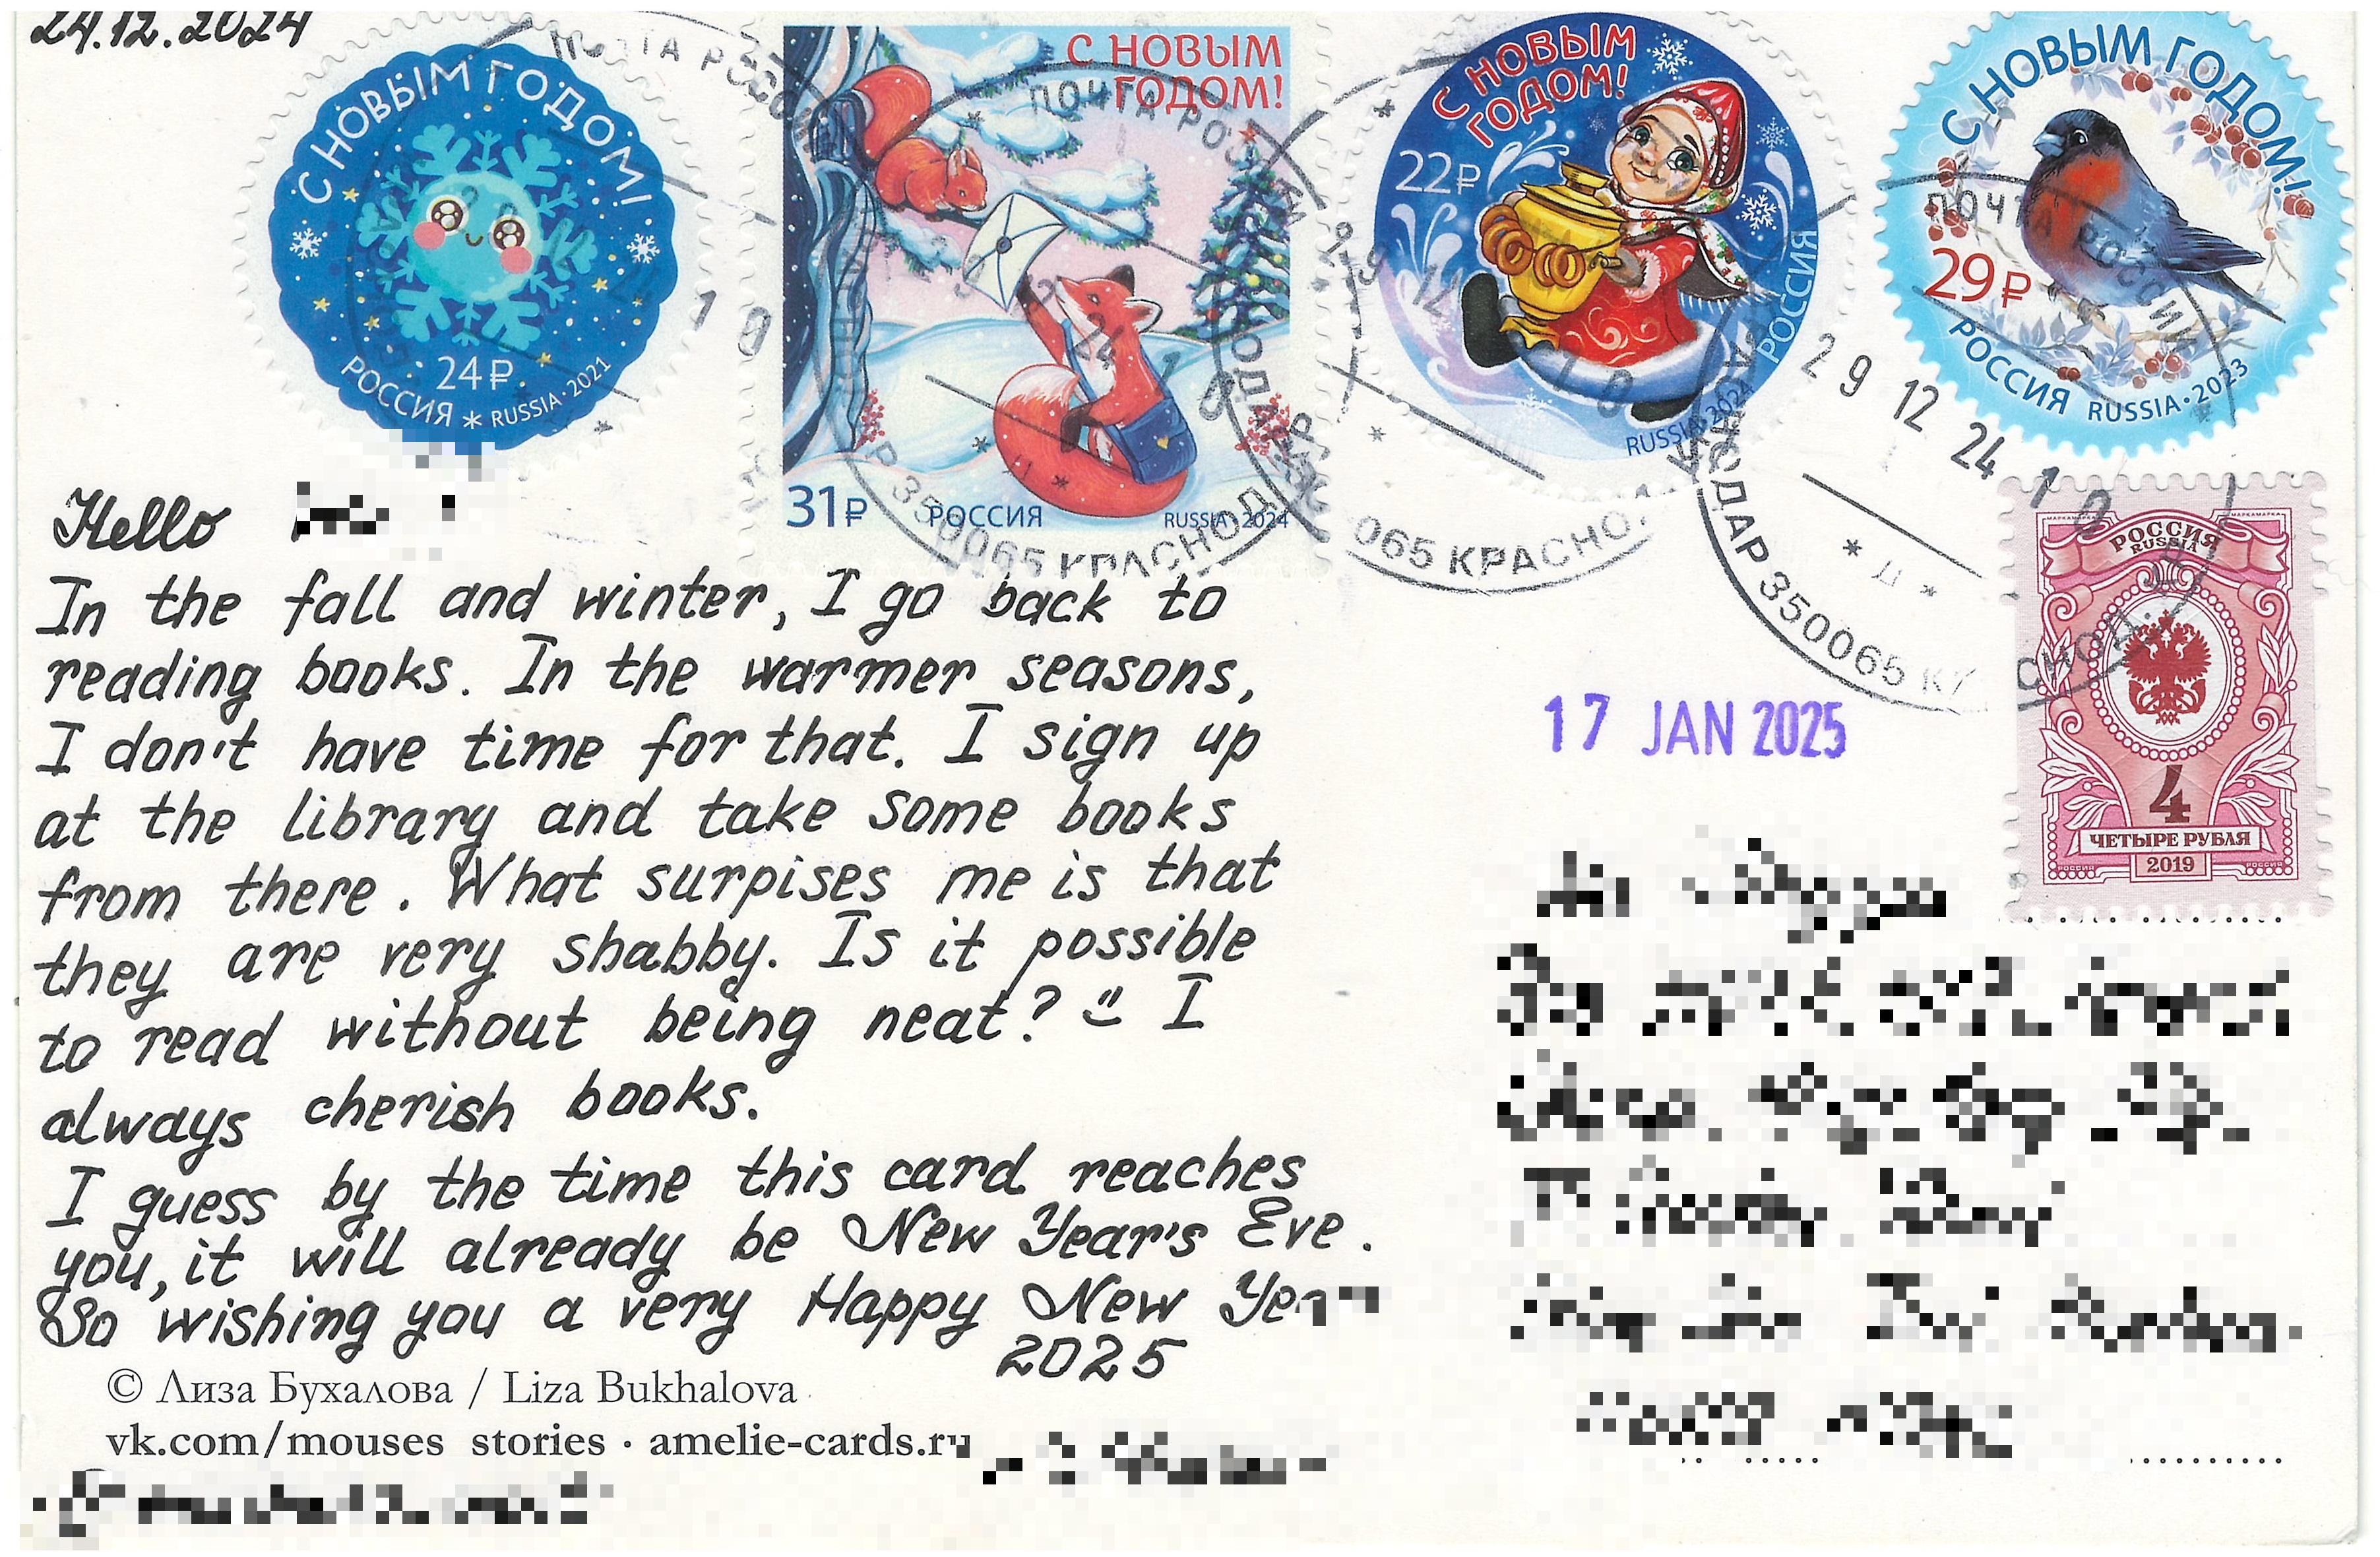 24.12.2024
С НОВЫМ ГОДОМ!
24₽
РОССИЯ * RUSSIA • 2021
С НОВЫМ
ГОДОМ!
31₽ РОССИЯ RUSSIA • 2024
С НОВЫМ
ГОДОМ!
22₽
РОССИЯ
RUSSIA • 2024
С НОВЫМ ГОДОМ!
29₽
РОССИЯ RUSSIA • 2023
ПОЧТА РОССИИ
29 12 24 10
350065 КРАСНОДАР
РОССИЯ
RUSSIA
4
ЧЕТЫРЕ РУБЛЯ
2019
17 JAN 2025
Hello
In the fall and winter, I go back to
reading books. In the warmer seasons,
I don't have time for that. I sign up
at the library and take some books
from there. What surpises me is that
they are very shabby. Is it possible
to read without being neat? I
always cherish books.
I guess by the time this card reaches
you, it will already be New Year's Eve.
So wishing you a very Happy New Year
2025
© Лиза Бухалова / Liza Bukhalova
vk.com/mouses stories · amelie-cards.ru